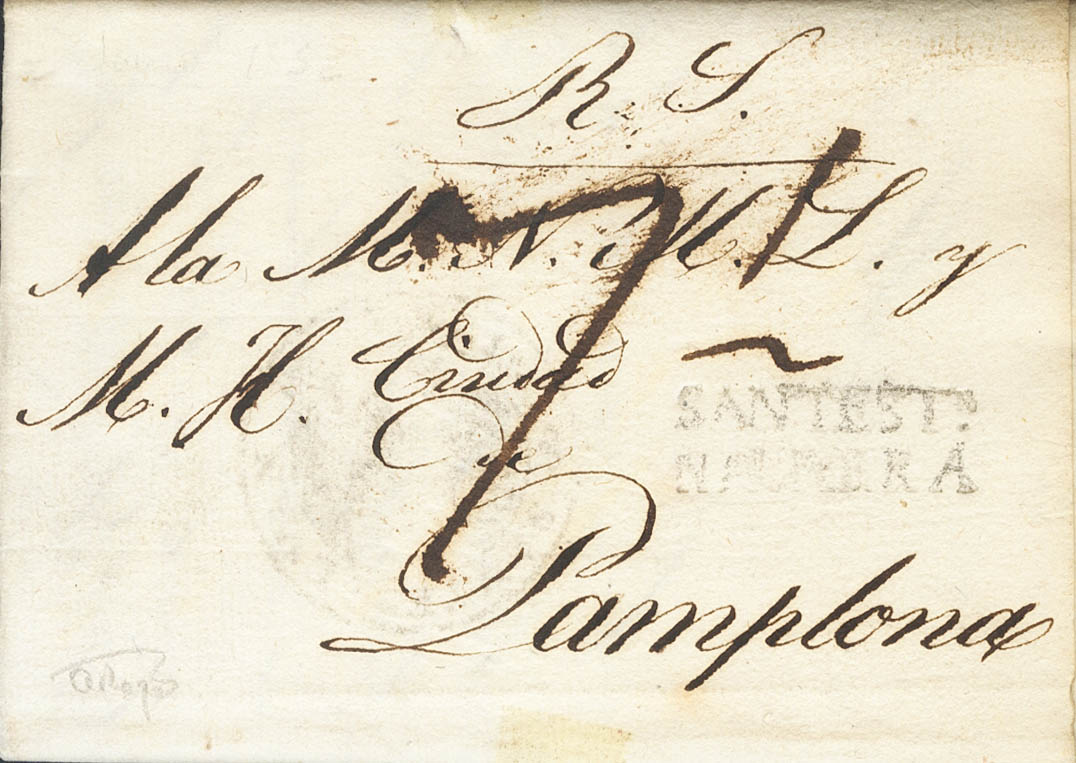 R. S.
A la M. N. M. L. y
M. H. Ciudad
De
Pamplona
7
SANTEST:
NAVARRA